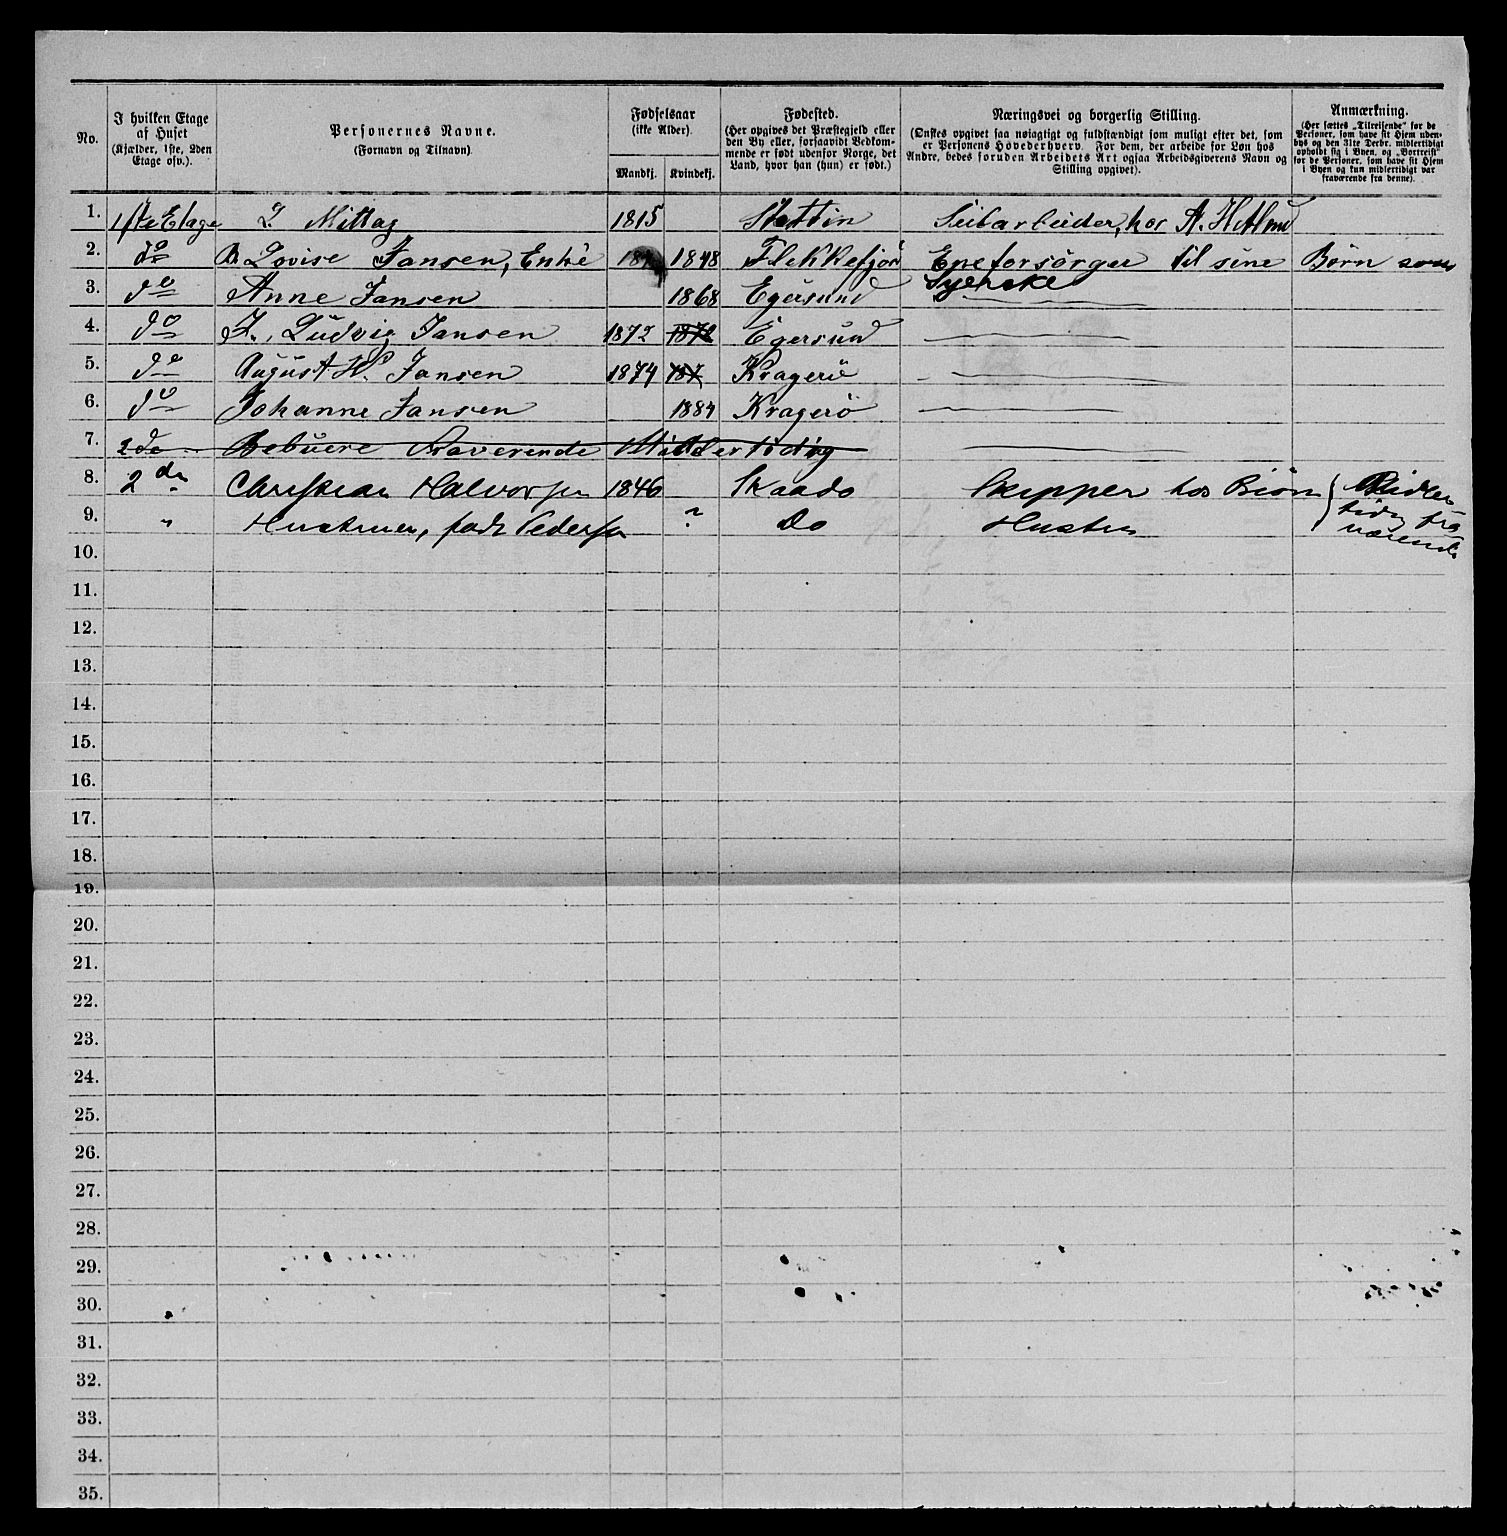 No.
I hvilken Etage
af Huset
(Kjælder, 1ste, 2den
Etage osv.).
Personernes Navne.
(Fornavn og Tilnavn).
Fødselsaar
(ikke Alder).
Mandkj. Kvindekj.
Fødested.
(Her opgives det Præstegjeld eller
den By eller, forsaavidt Vedkom-
mende er født udenfor Norge, det
Land, hvor han (hun) er født.)
Næringsvei og borgerlig Stilling.
(Ønskes opgivet saa nøiagtigt og fuldstændigt som muligt efter det, som
er Personens Hovederhverv. For dem, der arbeide for Løn hos
Andre, bedes foruden Arbeidets Art ogsaa Arbeidsgiverens Navn og
Stilling opgivet).
Anmærkning.
(Her sættes „Tilreisende“ for de
Personer, som have sit Hjem uden-
bys og den 31te Decbr. midlertidigt
opholdt sig i Byen, og „Bortreist“
for de Personer, som have sit Hjem
i Byen og kun midlertidigt var
fraværende fra denne).
1. 1ste Etage L. Mittag 1815 Stettin hos A.
2. do B Lovise Jansen, Enke 1848 Flekkefjor Eneforsörger til sine Børn som
Syerske
3. do Anne Jansen 1868 Egersund
4. do L. Ludvig Jansen 1872 1872 Egersund
5. do August H. Jansen 1874 187 Kragerö
6. do Johanne Jansen 1884 Kragerö
7. 2de Bebuere Fraverende Midlertidig
8. 2den Christian Halvorsen 1846 Skaado Skipper hos Biørn Midler-
tidig fra
værende
9. " Hustruen, født Pedersen ? Do Hustru
10.
11.
12.
13.
14.
15.
16.
17.
18.
19.
20.
21.
22.
23.
24.
25.
26.
27.
28.
29.
30.
31.
32.
33.
34.
35.